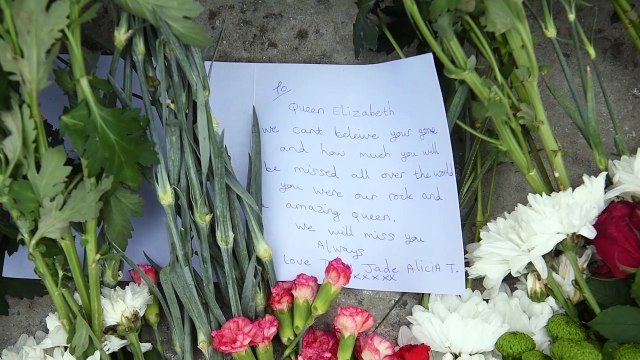 To
Queen Elizabeth
we cant beleive your gone
and how much you will
be missed all over the world
you were our rock and
amazing queen,
we will miss you
Always
Love Jade Alicia T.
xxxxx